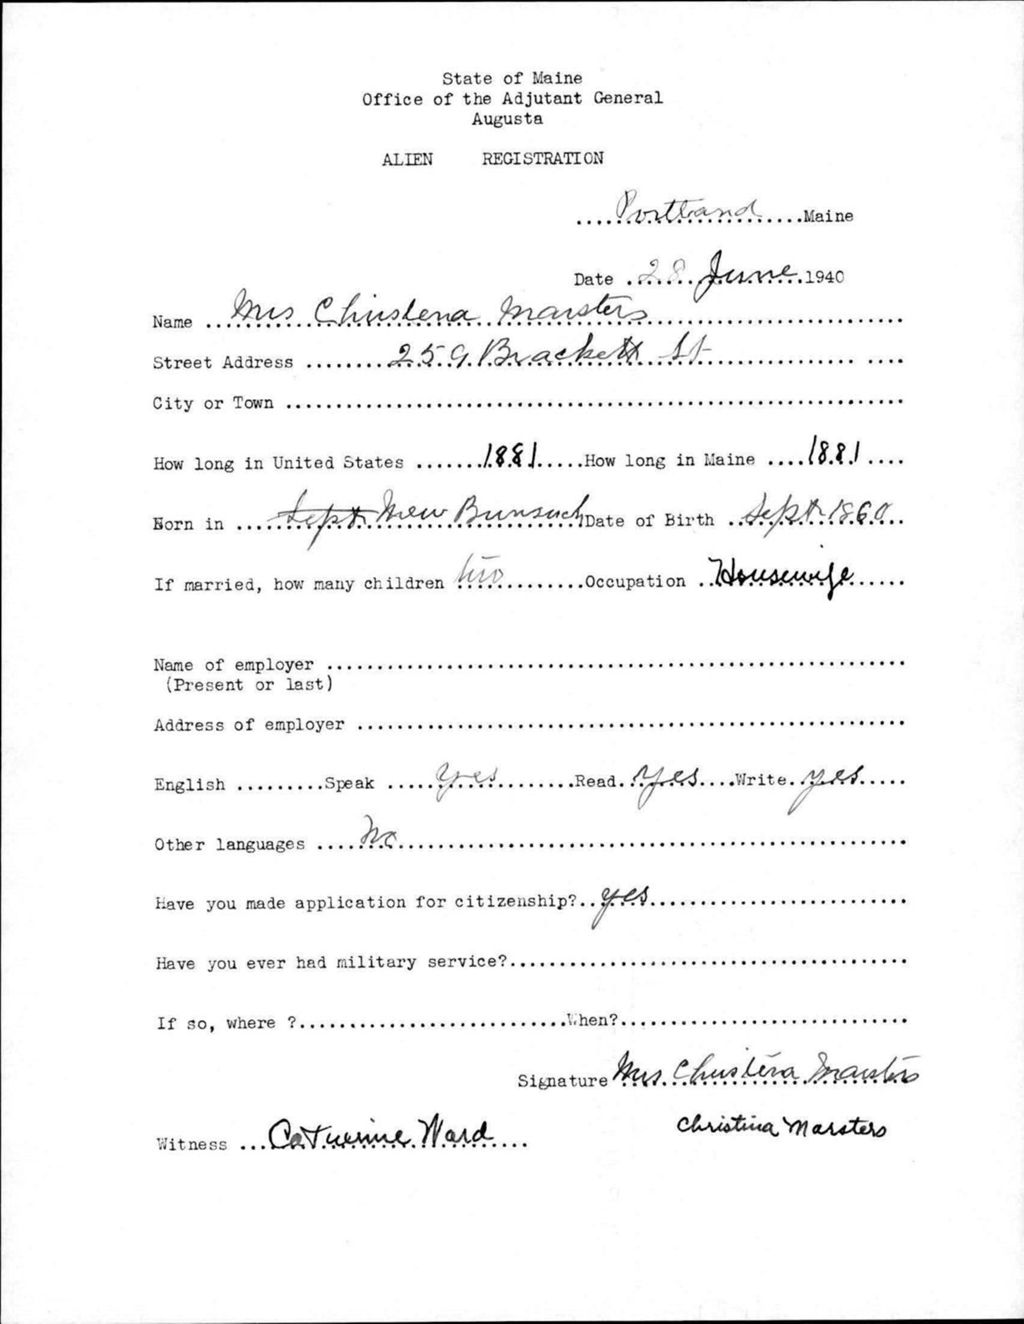 State of Maine
Office of the Adjutant General
Augusta
ALIEN REGISTRATION
....Portland....Maine
Date .28 June.1940
Name ..Mrs Christena Marsters....
Street Address ........259 Brackett St....
City or Town ....
How long in United States .......1881.....How long in Maine ....1881....
Born in ....~~Sept~~ New Bunswick Date of Birth ..Sept 1860...
If married, how many children two.........Occupation ..Housewife......
Name of employer ....
(Present or last)
Address of employer ....
English .........Speak .....Yes.........Read.Yes....Write.yes.....
Other languages ....No....
Have you made application for citizenship?..yes....
Have you ever had military service?....
If so, where ?....When?....
Signature Mrs. Christena Marsters
Christina Marsters
Witness ...Catherine Ward....